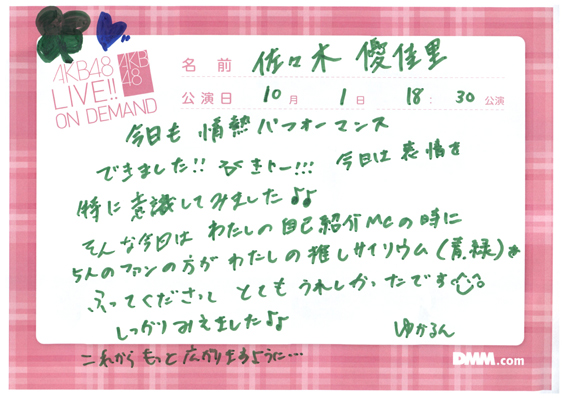 AKB48
LIVE!!
ON DEMAND
AKB
48
名前 佐々木 優佳里
公演日 10月 1日 18:30公演
今日も 情熱パフォーマンス
できました!! !!! 今日は表情を
特に意識してみました♪♪
そんな今日は わたしの自己紹介MCの時に
5人のファンの方が わたしの推しサイリウム(青緑)を
ふってくださって とてもうれしかったです
しっかりみえました♪♪
ゆかるん
これから もっと 広がりますように…
DMM.com